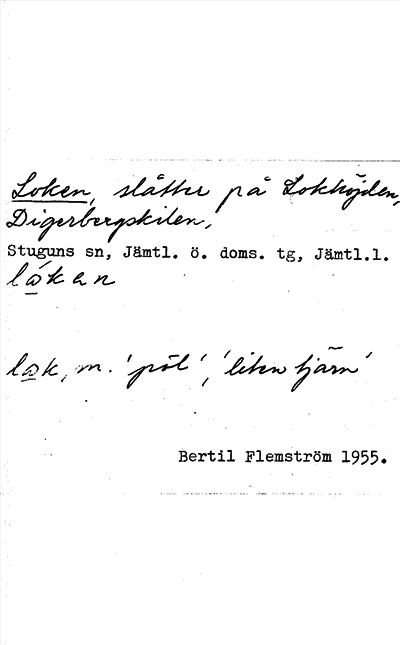 Loken, slåtter på Lokhöjden,
Digerbergskilen,
Stuguns sn, Jämtl. ö. doms. tg, Jämtl.l.
lo̲k, m. 'pöl', 'liten tjärn'
Bertil Flemström 1955.